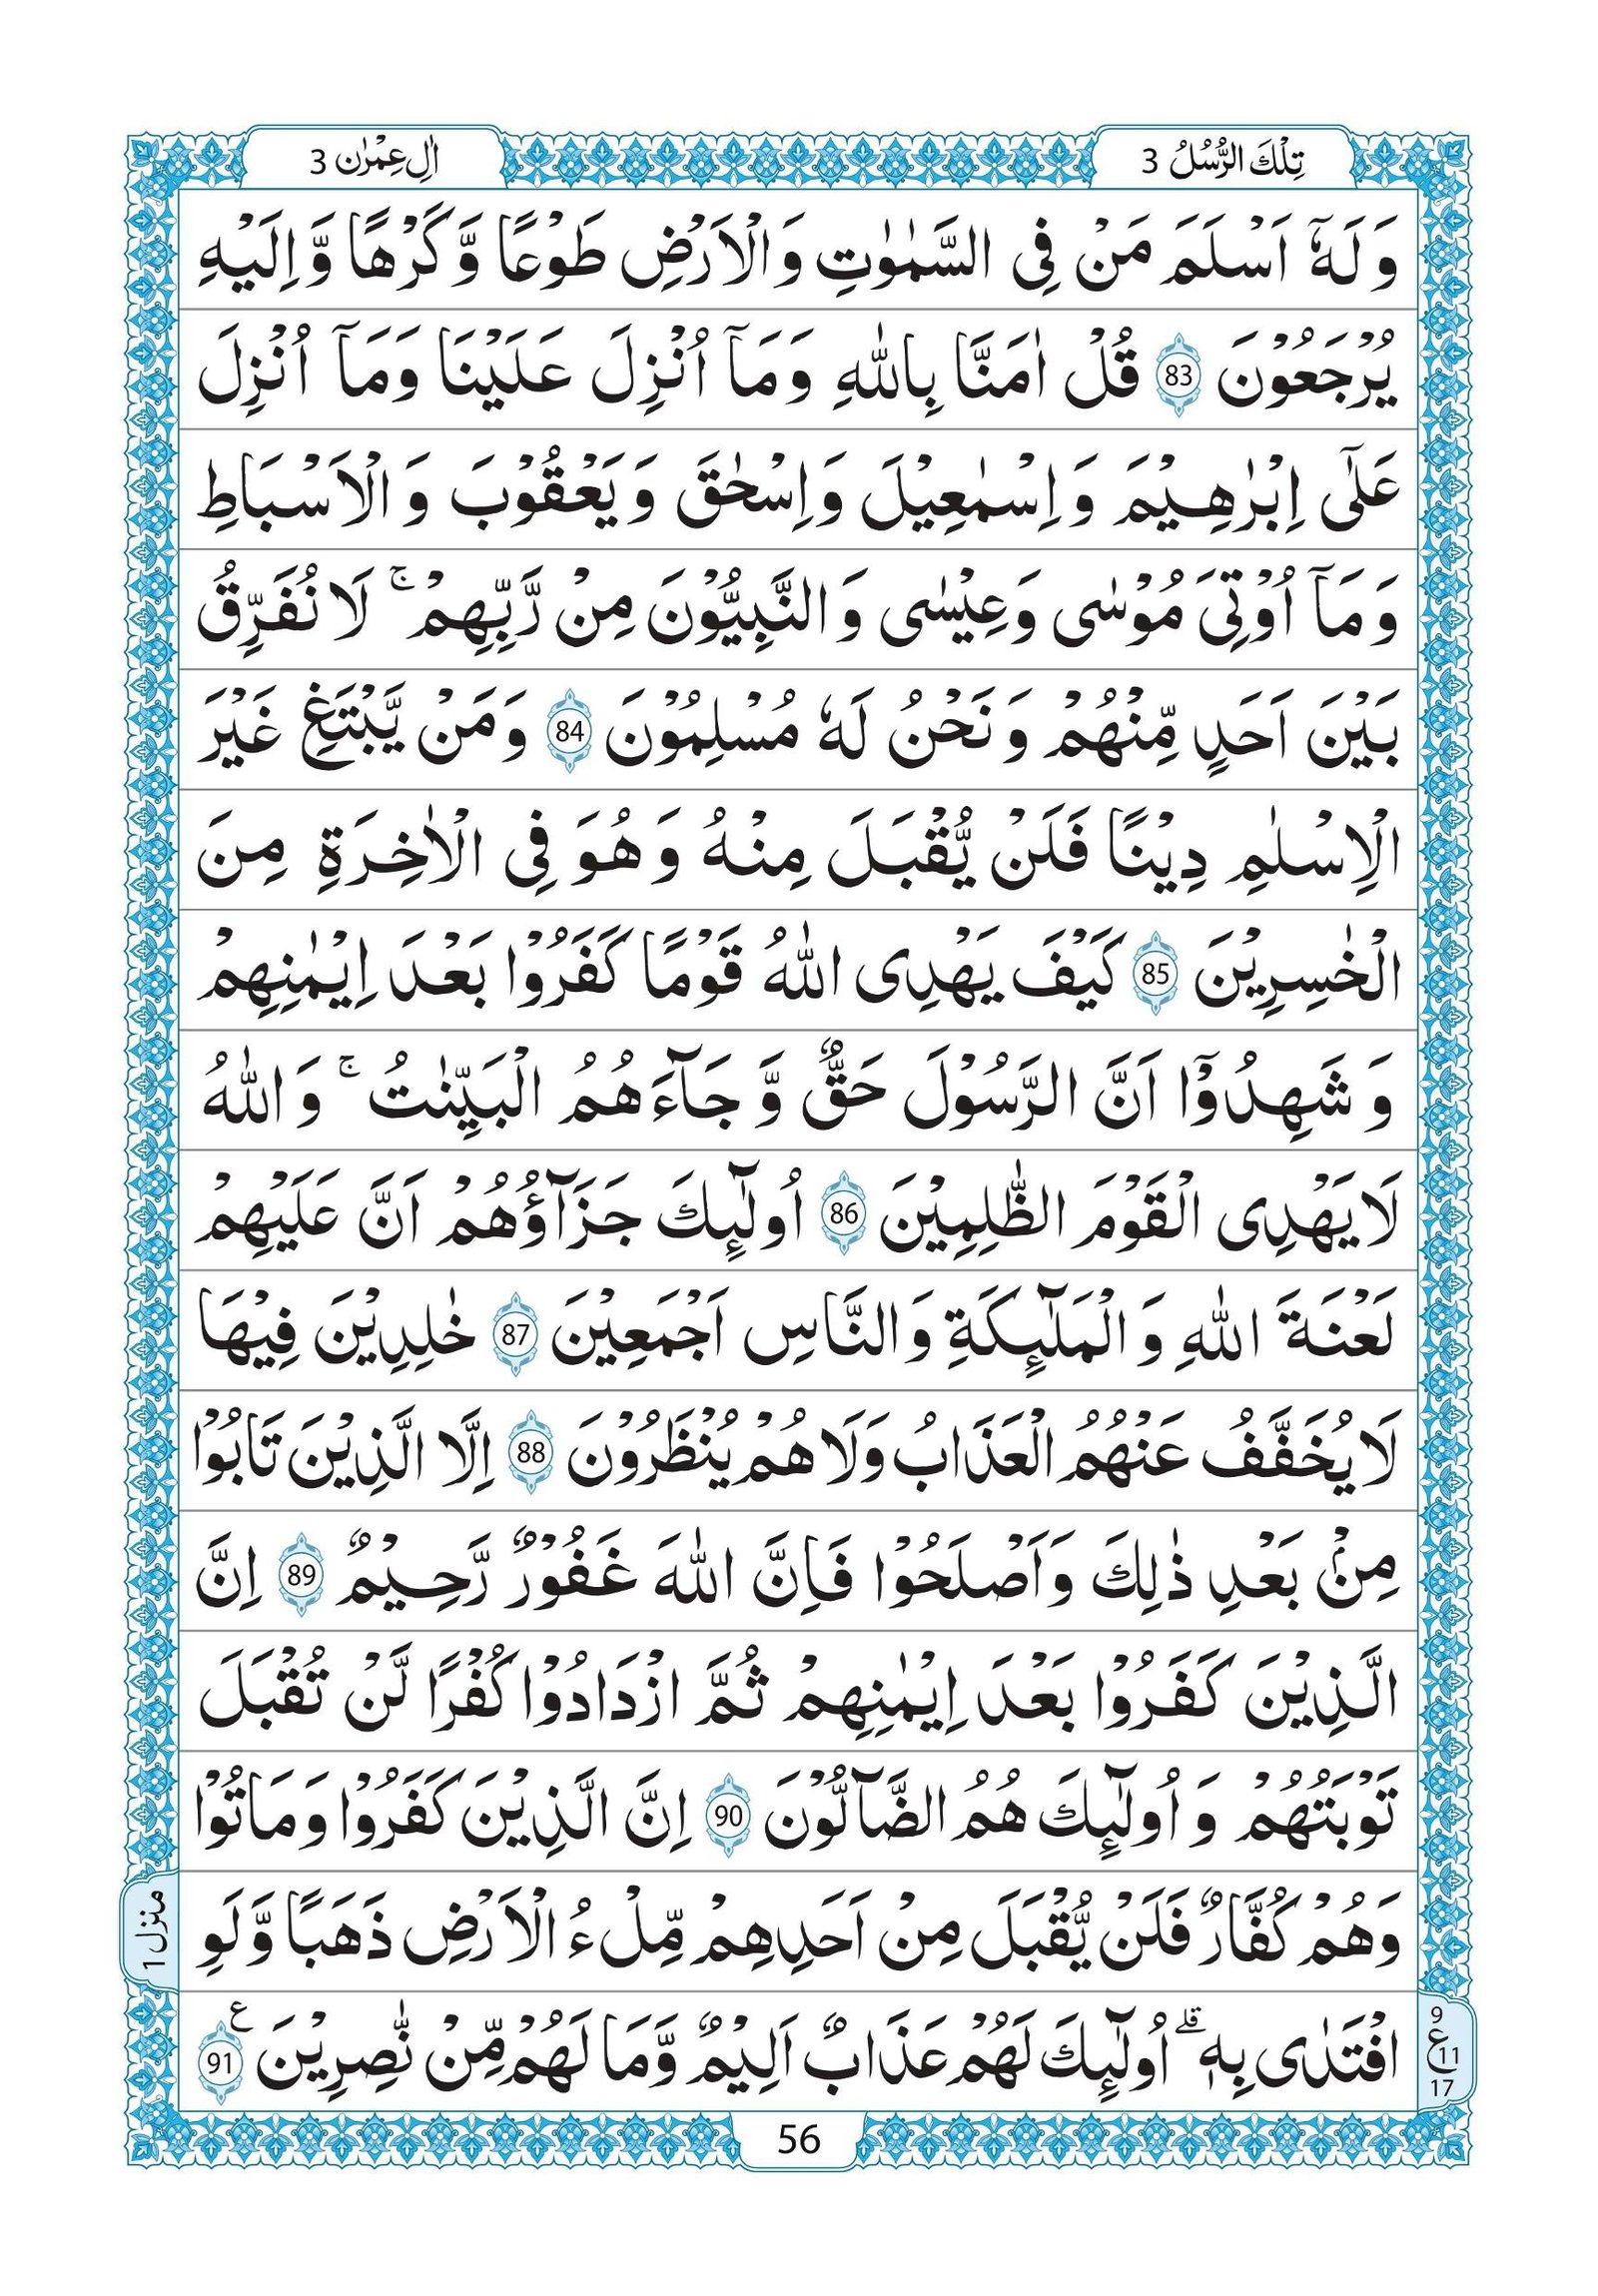 تِلْكَ الرُّسُلُ 3
اٰلِ عِمْرٰن 3
وَلَهٗۤ اَسْلَمَ مَنْ فِی السَّمٰوٰتِ وَالْاَرْضِ طَوْعًا وَّكَرْهًا وَّاِلَیْهِ
یُرْجَعُوْنَ 83 قُلْ اٰمَنَّا بِاللّٰهِ وَمَاۤ اُنْزِلَ عَلَیْنَا وَمَاۤ اُنْزِلَ
عَلٰۤی اِبْرٰهِیْمَ وَاِسْمٰعِیْلَ وَاِسْحٰقَ وَیَعْقُوْبَ وَالْاَسْبَاطِ
وَمَاۤ اُوْتِیَ مُوْسٰی وَعِیْسٰی وَالنَّبِیُّوْنَ مِنْ رَّبِّهِمْ ۚ لَا نُفَرِّقُ
بَیْنَ اَحَدٍ مِّنْهُمْ وَنَحْنُ لَهٗ مُسْلِمُوْنَ 84 وَمَنْ یَّبْتَغِ غَیْرَ
الْاِسْلٰمِ دِیْنًا فَلَنْ یُّقْبَلَ مِنْهُ وَهُوَ فِی الْاٰخِرَةِ مِنَ
الْخٰسِرِیْنَ 85 كَیْفَ یَهْدِی اللّٰهُ قَوْمًا كَفَرُوْا بَعْدَ اِیْمٰنِهِمْ
وَشَهِدُوْۤا اَنَّ الرَّسُوْلَ حَقٌّ وَّجَآءَهُمُ الْبَیِّنٰتُ ۚ وَاللّٰهُ
لَا یَهْدِی الْقَوْمَ الظّٰلِمِیْنَ 86 اُولٰٓئِكَ جَزَآؤُهُمْ اَنَّ عَلَیْهِمْ
لَعْنَةَ اللّٰهِ وَالْمَلٰٓئِكَةِ وَالنَّاسِ اَجْمَعِیْنَ 87 خٰلِدِیْنَ فِیْهَا
لَا یُخَفَّفُ عَنْهُمُ الْعَذَابُ وَلَا هُمْ یُنْظَرُوْنَ 88 اِلَّا الَّذِیْنَ تَابُوْا
مِنْۢ بَعْدِ ذٰلِكَ وَاَصْلَحُوْا فَاِنَّ اللّٰهَ غَفُوْرٌ رَّحِیْمٌ 89 اِنَّ
الَّذِیْنَ كَفَرُوْا بَعْدَ اِیْمٰنِهِمْ ثُمَّ ازْدَادُوْا كُفْرًا لَّنْ تُقْبَلَ
تَوْبَتُهُمْ وَاُولٰٓئِكَ هُمُ الضَّآلُّوْنَ 90 اِنَّ الَّذِیْنَ كَفَرُوْا وَمَاتُوْا
وَهُمْ كُفَّارٌ فَلَنْ یُّقْبَلَ مِنْ اَحَدِهِمْ مِّلْءُ الْاَرْضِ ذَهَبًا وَّلَوِ
افْتَدٰی بِهٖ ۗ اُولٰٓئِكَ لَهُمْ عَذَابٌ اَلِیْمٌ وَّمَا لَهُمْ مِّنْ نّٰصِرِیْنَ ع 91
منزل 1
9
ع 11
17
56